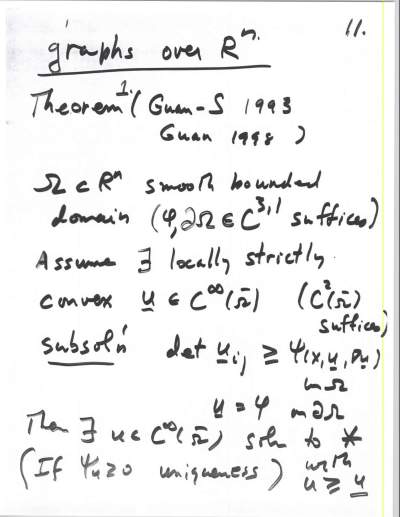 11.
graphs over Rⁿ.
Theorem 1. (Guan-S 1993
Guan 1998)
Ω ⊂ Rⁿ smooth bounded
domain (φ, ∂Ω ∈ C^{3,1} suffices)
Assume ∃ locally strictly
convex u̲ ∈ C^∞(Ω̄) (C²(Ω̄)
suffices)
subsol'n det u̲_{ij} ≥ ψ(x, u̲, Du̲)
in Ω
u̲ = φ on ∂Ω
Then ∃ u ∈ C^∞(Ω̄) soln to *
(If ψ_u ≥ 0 uniqueness) with
u ≥ u̲